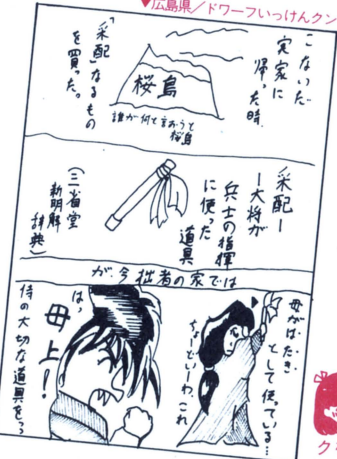 ▼広島県／ドワーフいっけんクン
こないだ
実家に
帰った時、
桜島
誰が何て言おうと
桜島
「采配」なるもの
を買った。
采配ー
ー大将が
兵士の指揮
に使った
道具
（三省堂
新明解
辞典）
が、今拙者の家では
母がはたき
として使っている…
ちょーどいーわ、これ
は、
母上！
侍の大切な道具をっっ
ク